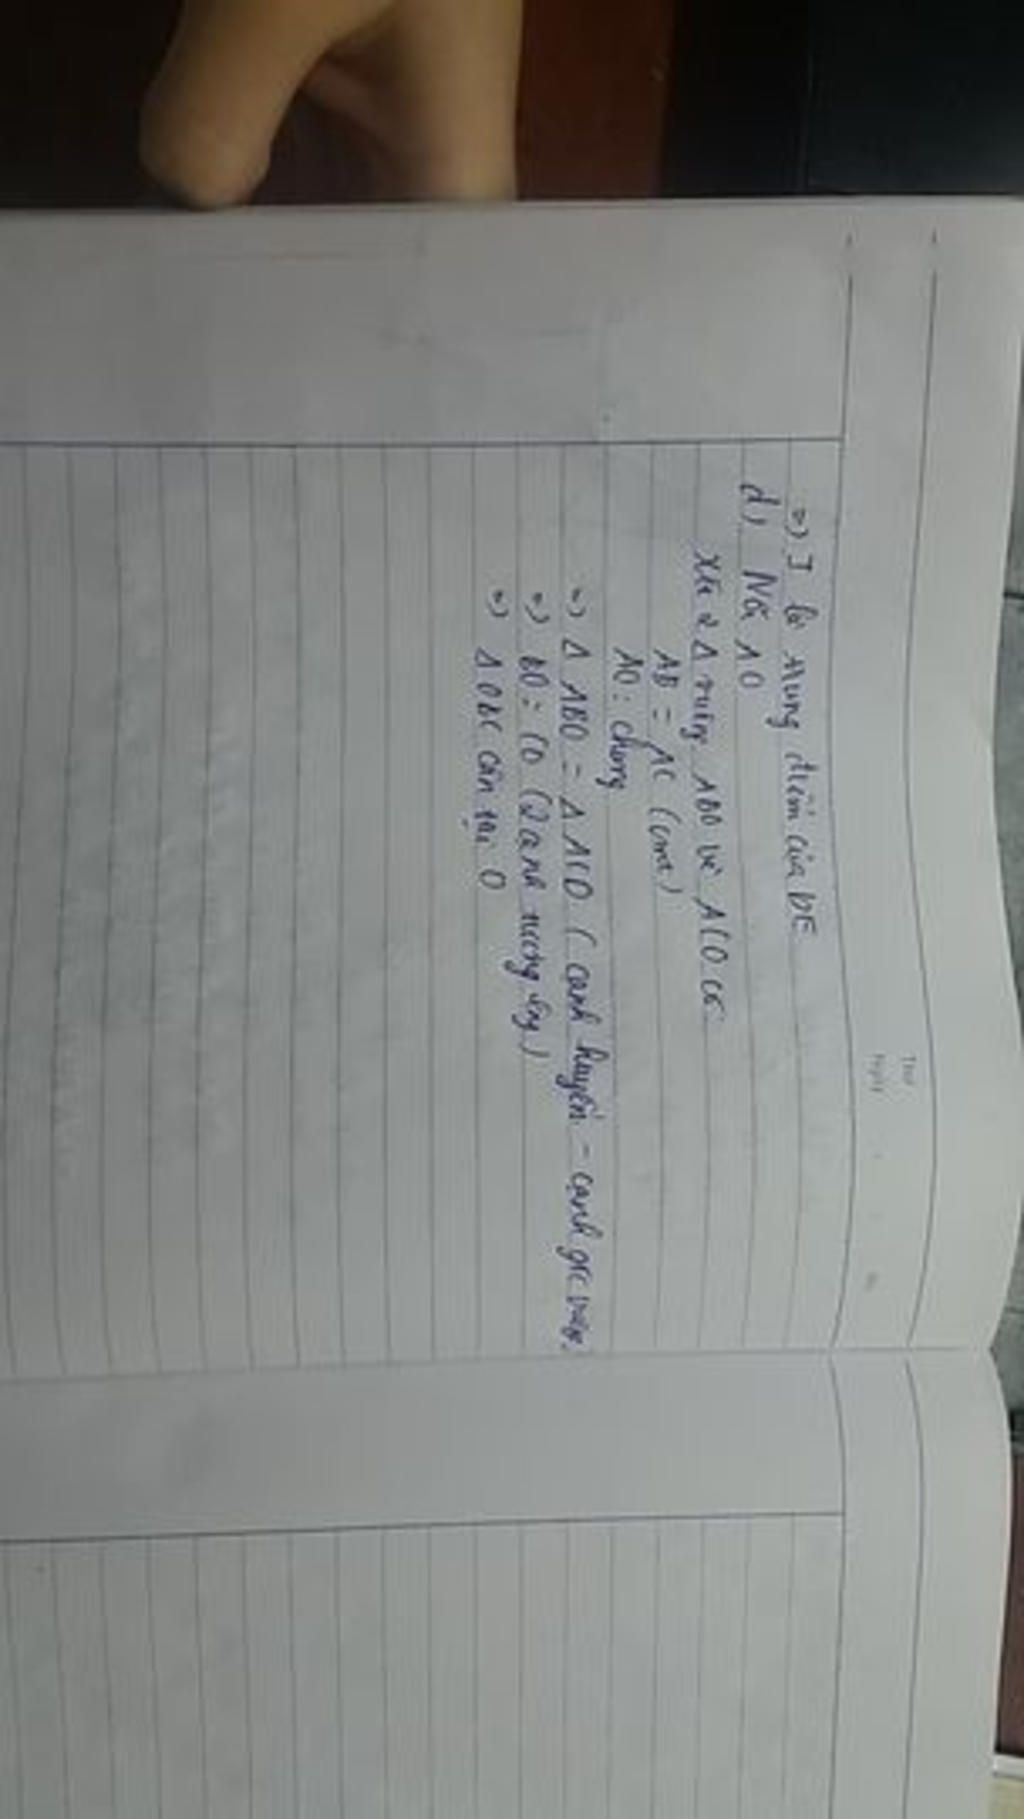 =) I là trung điểm của DE
d) Nối AO
Xét 2 Δ vuông ABO và ACO có:
AB = AC (cmt)
AO: chung
=) Δ ABO = Δ ACO (cạnh huyền - cạnh góc vuông)
=) BO = CO (2 cạnh tương ứng)
=) Δ OBC cân tại O
Thứ
Ngày